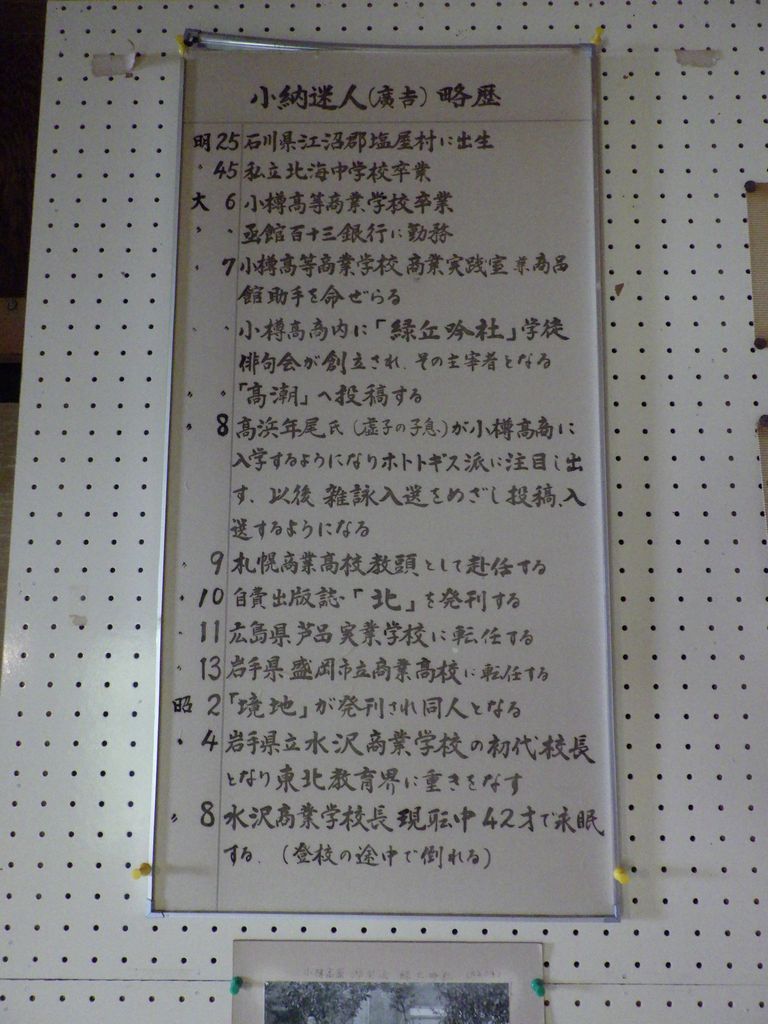 小納迷人(廣吉)略歴
明25 石川県江沼郡塩屋村に出生
〃45 私立北海中学校卒業
大 6 小樽高等商業学校卒業
〃 〃 函館百十三銀行に勤務
〃 7 小樽高等商業学校 商業実践室兼商品
館助手を命ぜらる
〃 〃 小樽高商内に「緑丘吟社」学徒
俳句会が創立され、その主宰者となる
〃 〃 「高潮」へ投稿する
〃 8 高浜年尾氏(虚子の子息)が小樽高商に
入学するようになりホトトギス派に注目し出
す、以後 雑詠入選をめざし投稿、入
選するようになる
〃 9 札幌商業高校教頭として赴任する
〃 10 自費出版誌・「北」を発刊する
〃 11 広島県芦品実業学校に転任する
〃 13 岩手県盛岡市立商業高校に転任する
昭 2 「境地」が発刊され同人となる
〃 4 岩手県立水沢商業学校の初代校長
となり東北教育界に重きをなす
〃 8 水沢商業学校長現転中42才で永眠
する。(登校の途中で倒れる)